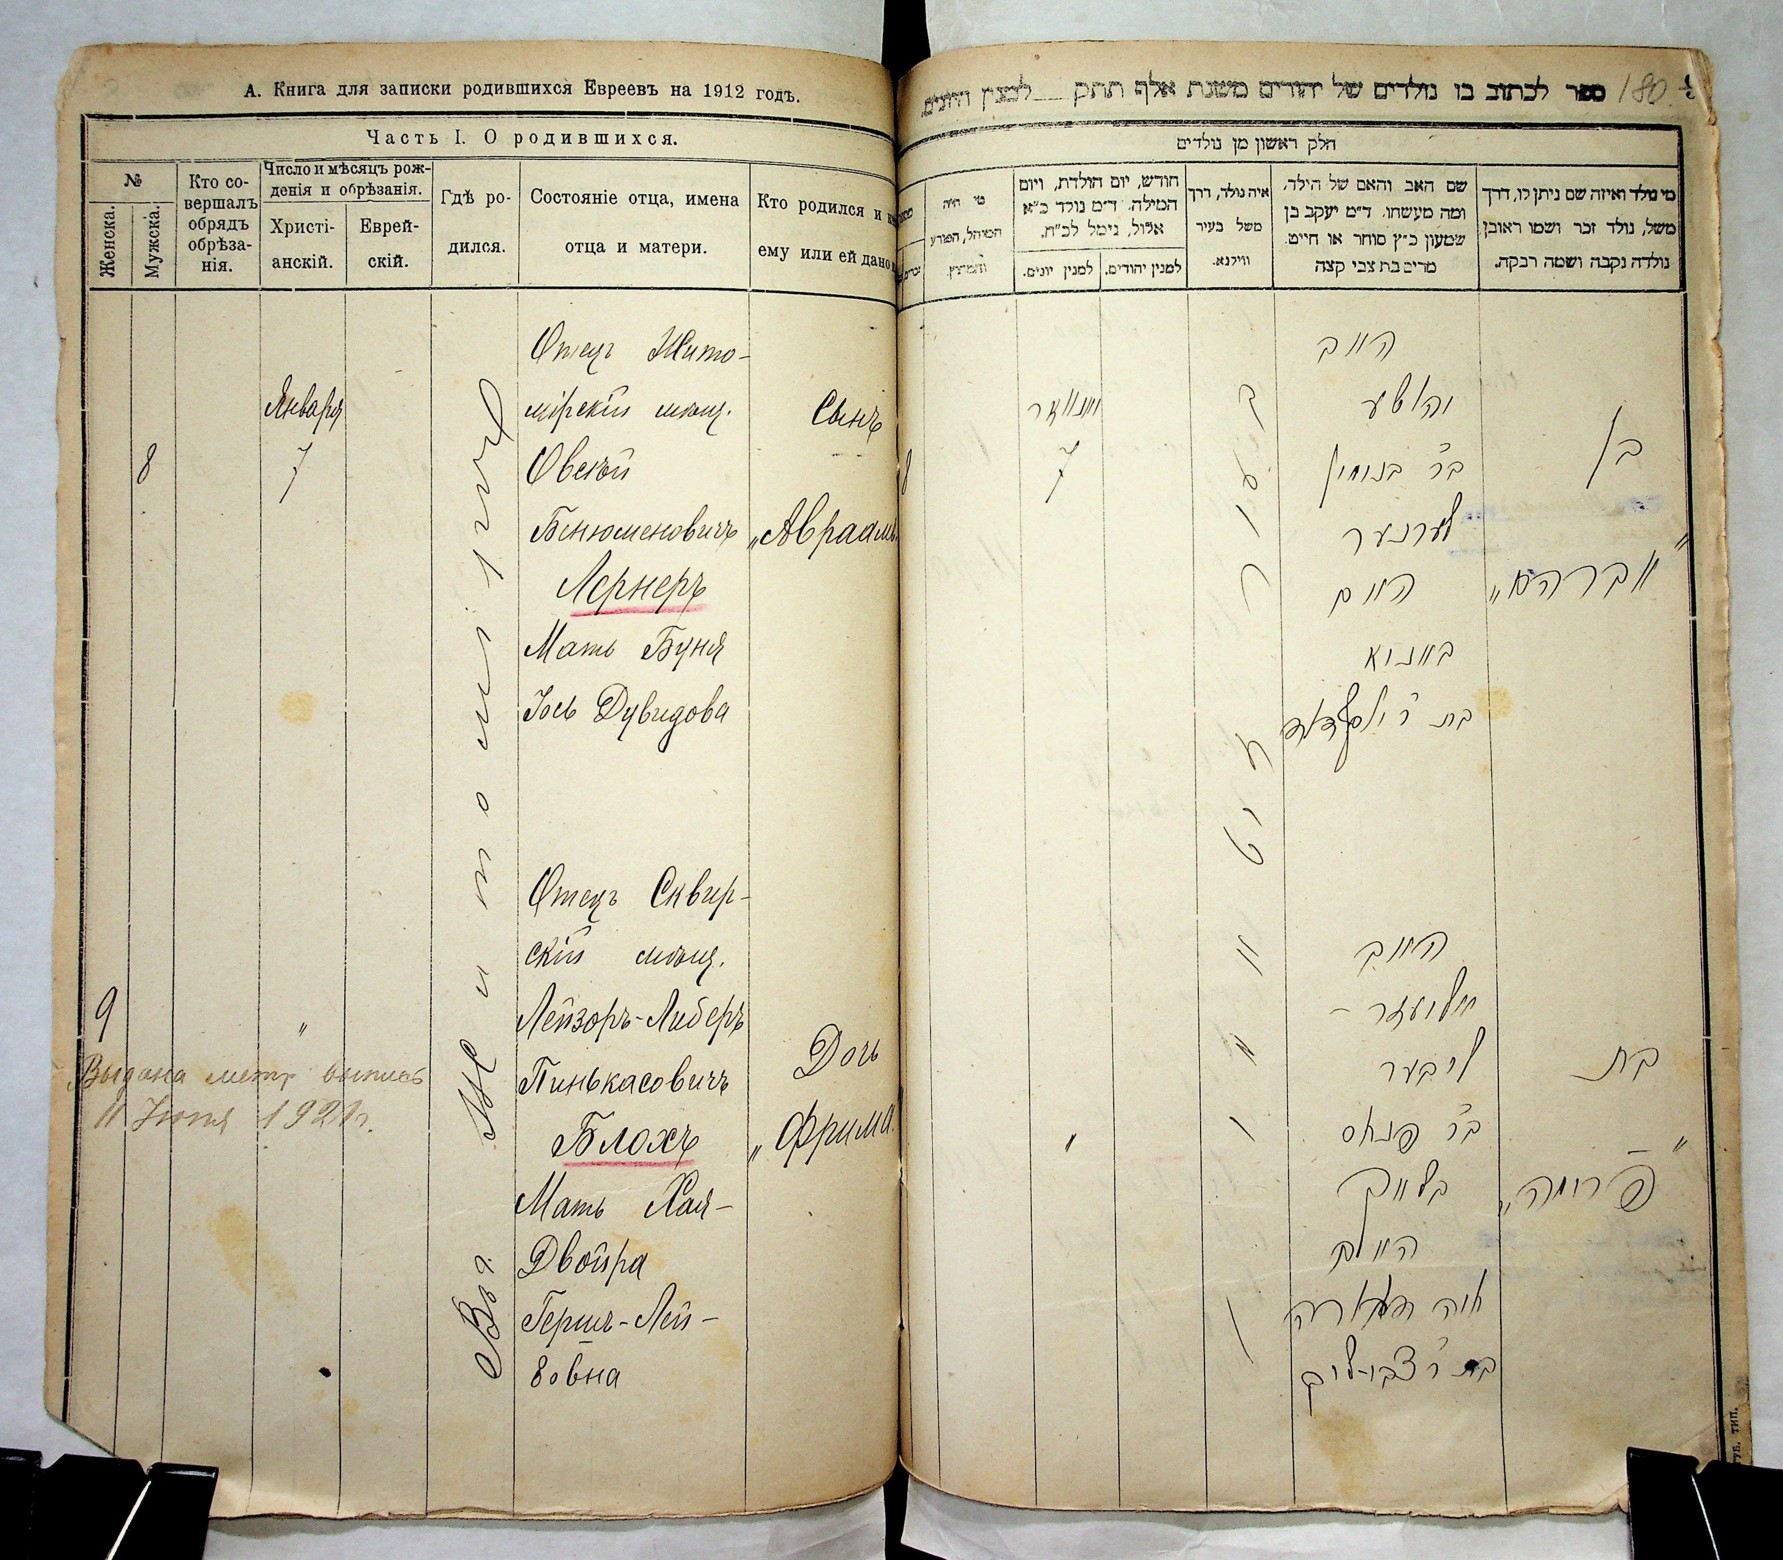 А. Книга для записки родившихся Евреевъ на 1912 годъ.
Часть I. О родившихся.
№
Женска.
Мужска.
Кто со-
вершалъ
обрядъ
обрѣза-
нія.
Число и мѣсяцъ рож-
денія и обрѣзанія.
Христі-
анскій.
Еврей-
скій.
Гдѣ ро-
дился.
Состояніе отца, имена
отца и матери.
Кто родился и
ему или ей дано
8
Января
7
Отецъ Жито-
мірскій мѣщ.
Овсѣй
Бенюменовичъ
Лернеръ
Мать Буня
Іось Дувидова
Сынъ
„Авраамъ
9
"
Выдана метр выпись
11 Іюня 1921г.
Отецъ Сквир-
скій мѣщ.
Лейзоръ-Либеръ
Пинькасовичъ
Блохъ
Мать Хая-
Двойра
Гершъ-Лей-
бовна
Дочь
„Фрима
Въ г. Житомірѣ
180
ספר לכתוב בו נולדים של יהודים משנת אלף תתק לבנין היונים
חלק ראשון מן נולדים
מי נולד ואיזה שם ניתן לו, דרך
משל, נולד זכר ושמו ראובן
נולדה נקבה ושמה רבקה.
שם האב והאם של הילד,
ומה מעשהו. ד"מ יעקב בן
שמעון כ"ץ סוחר או חייט.
מרים בת צבי קצה
איה נולד, דרך
משל בעיר
ווילנא.
חודש, יום הולדת, ויום
המילה. ד"מ נולד כ"א
אלול, נימל לכ"ח.
למנין יהודים.
למנין יונים.
מי היה
המוהל, הפורע
והמוצץ.
8
7
יאנוואר
האב
בן
לערנער
האם
בוניא
„אברהם"
האב
אליעזר -
ליבער
בר פנחס
בלאך
האם
חיה דווארה
בת
„פרימה"
"